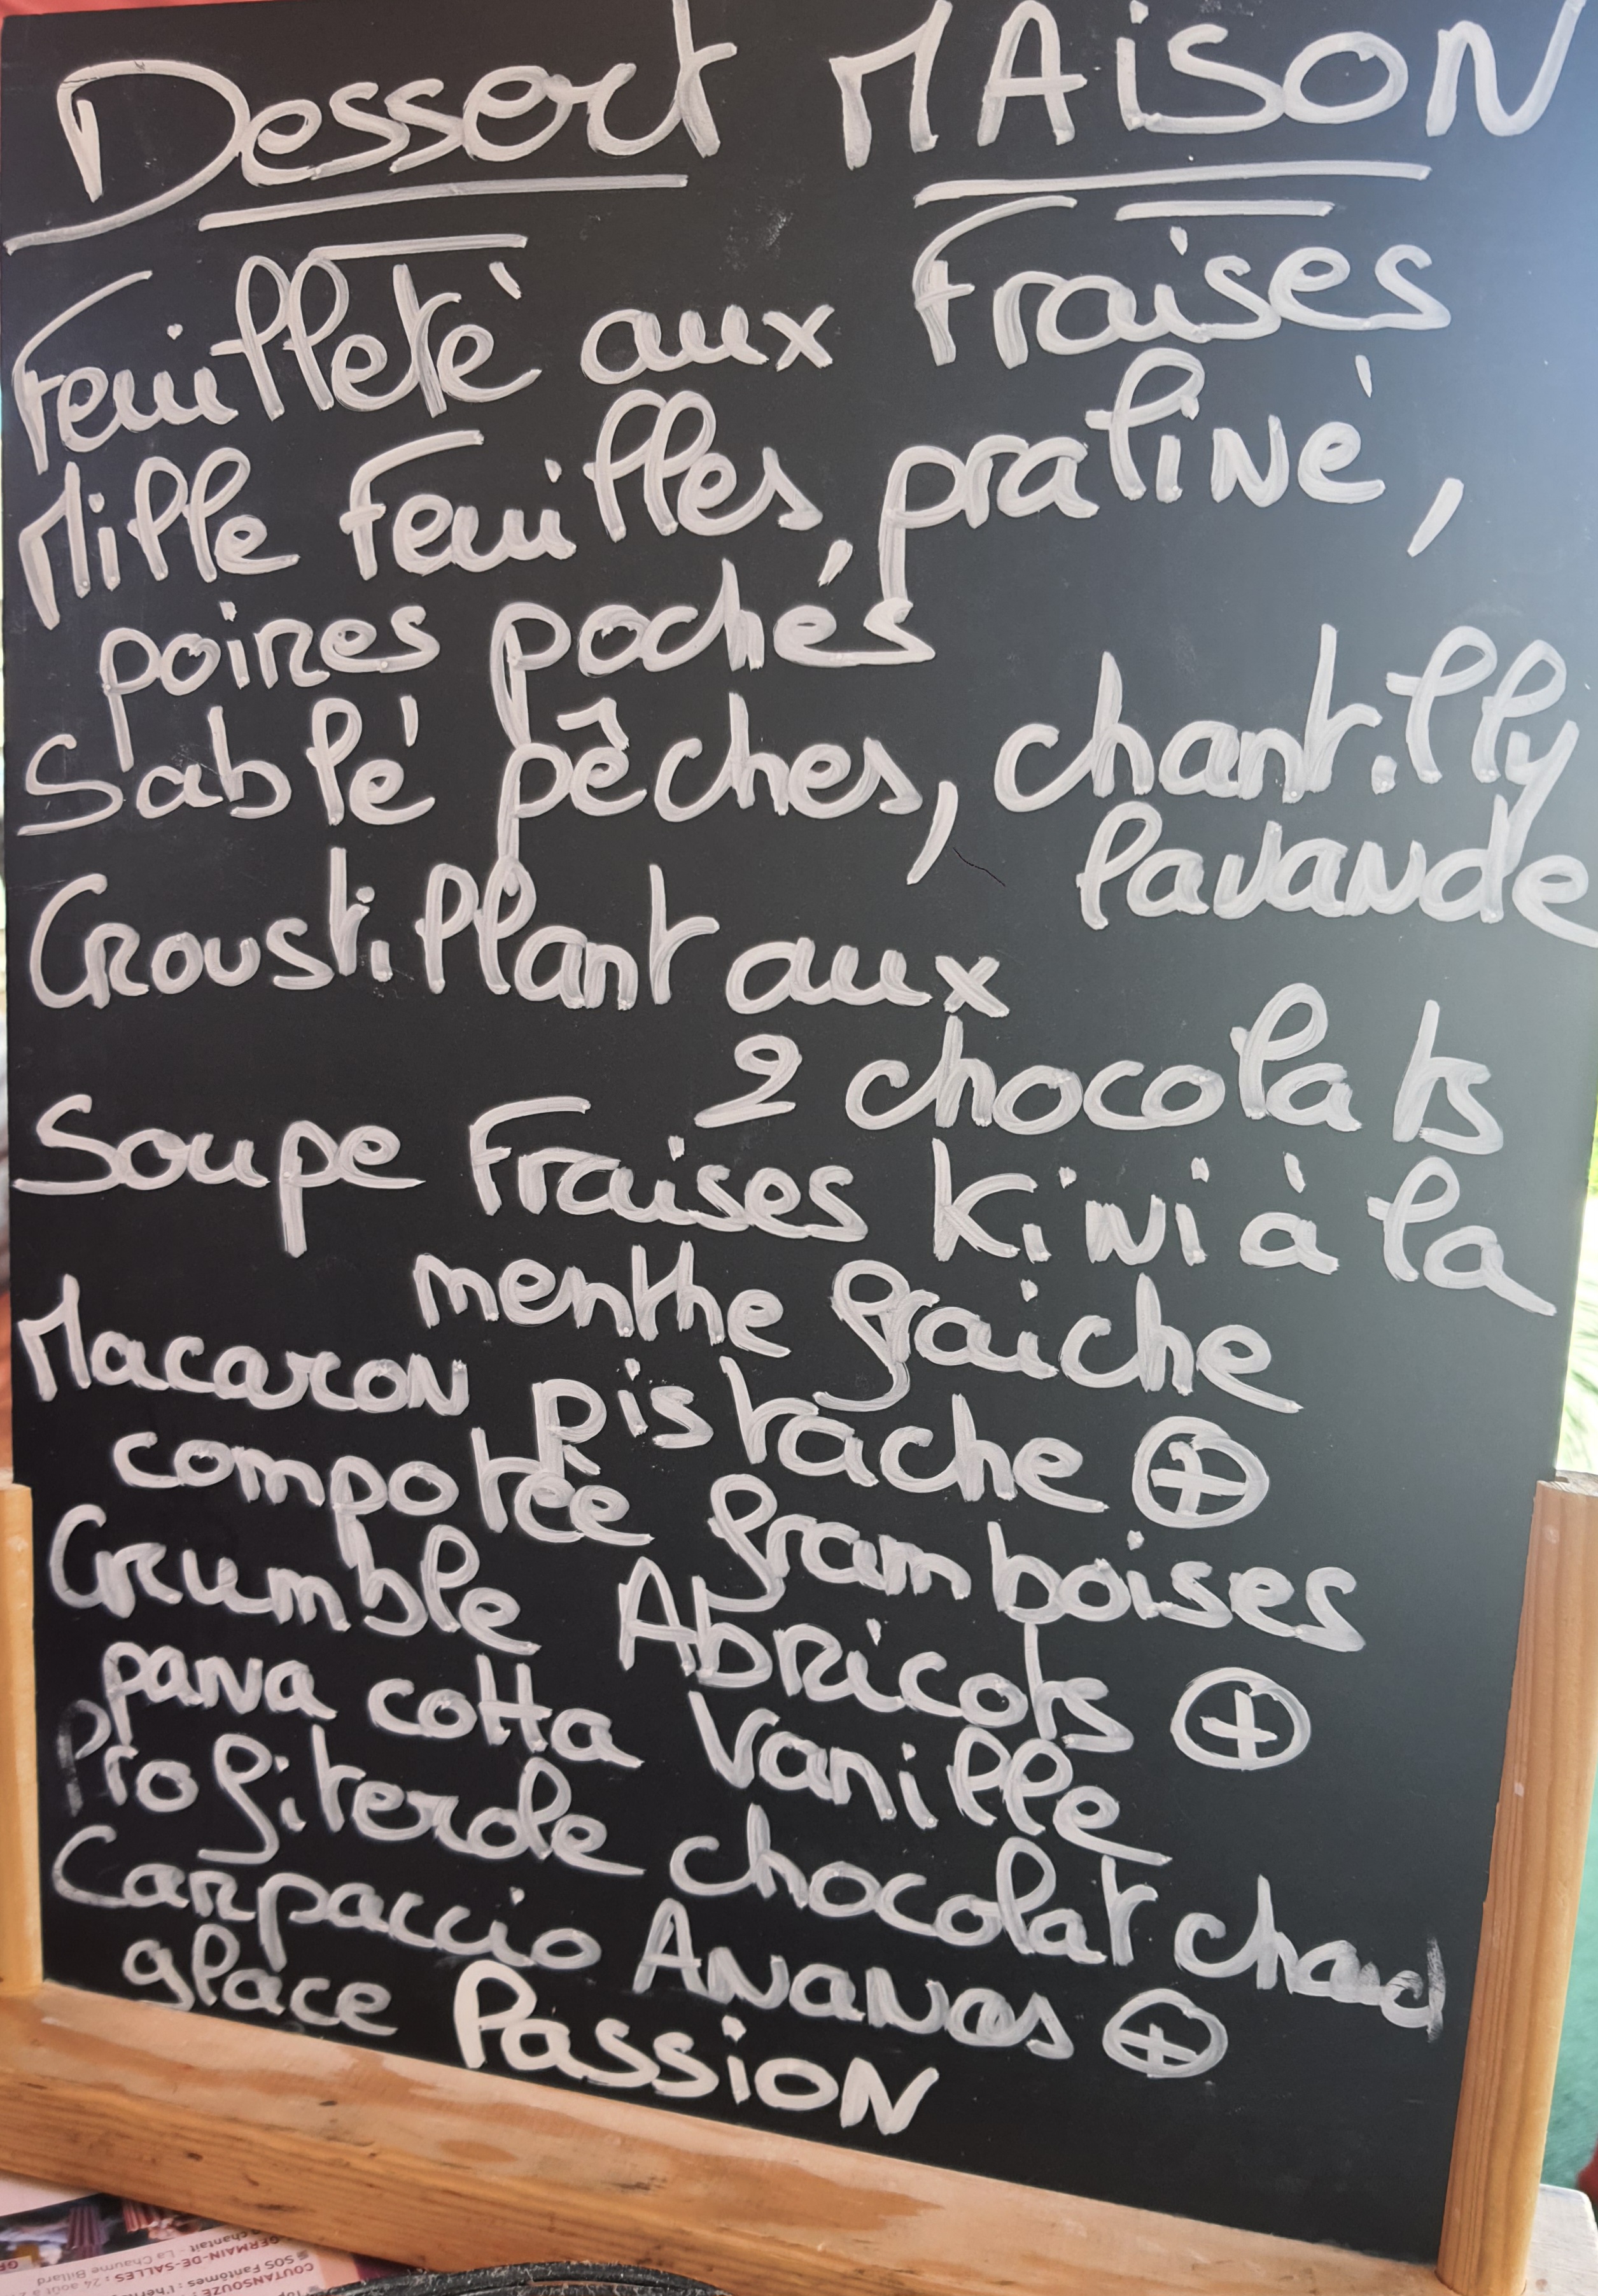 Dessert MAiSON
Feuilleté aux Fraises
Mille Feuilles, praliné,
poires pochés
Sablé pêches, chantilly
lavande
Croustillant aux
2 chocolats
Soupe Fraises Kiwi à la
menthe fraiche
Macaron pistache ⊕
compotée framboises
Crumble Abricots ⊕
panna cotta Vanille
Profiterole chocolat chaud
Carpaccio Ananas ⊕
glace Passion
GERMAIN-DE-SALLES :
SOS Fantômes : l'hé
La Chaume Billard
COUTANSOUZE : 24 août à 2